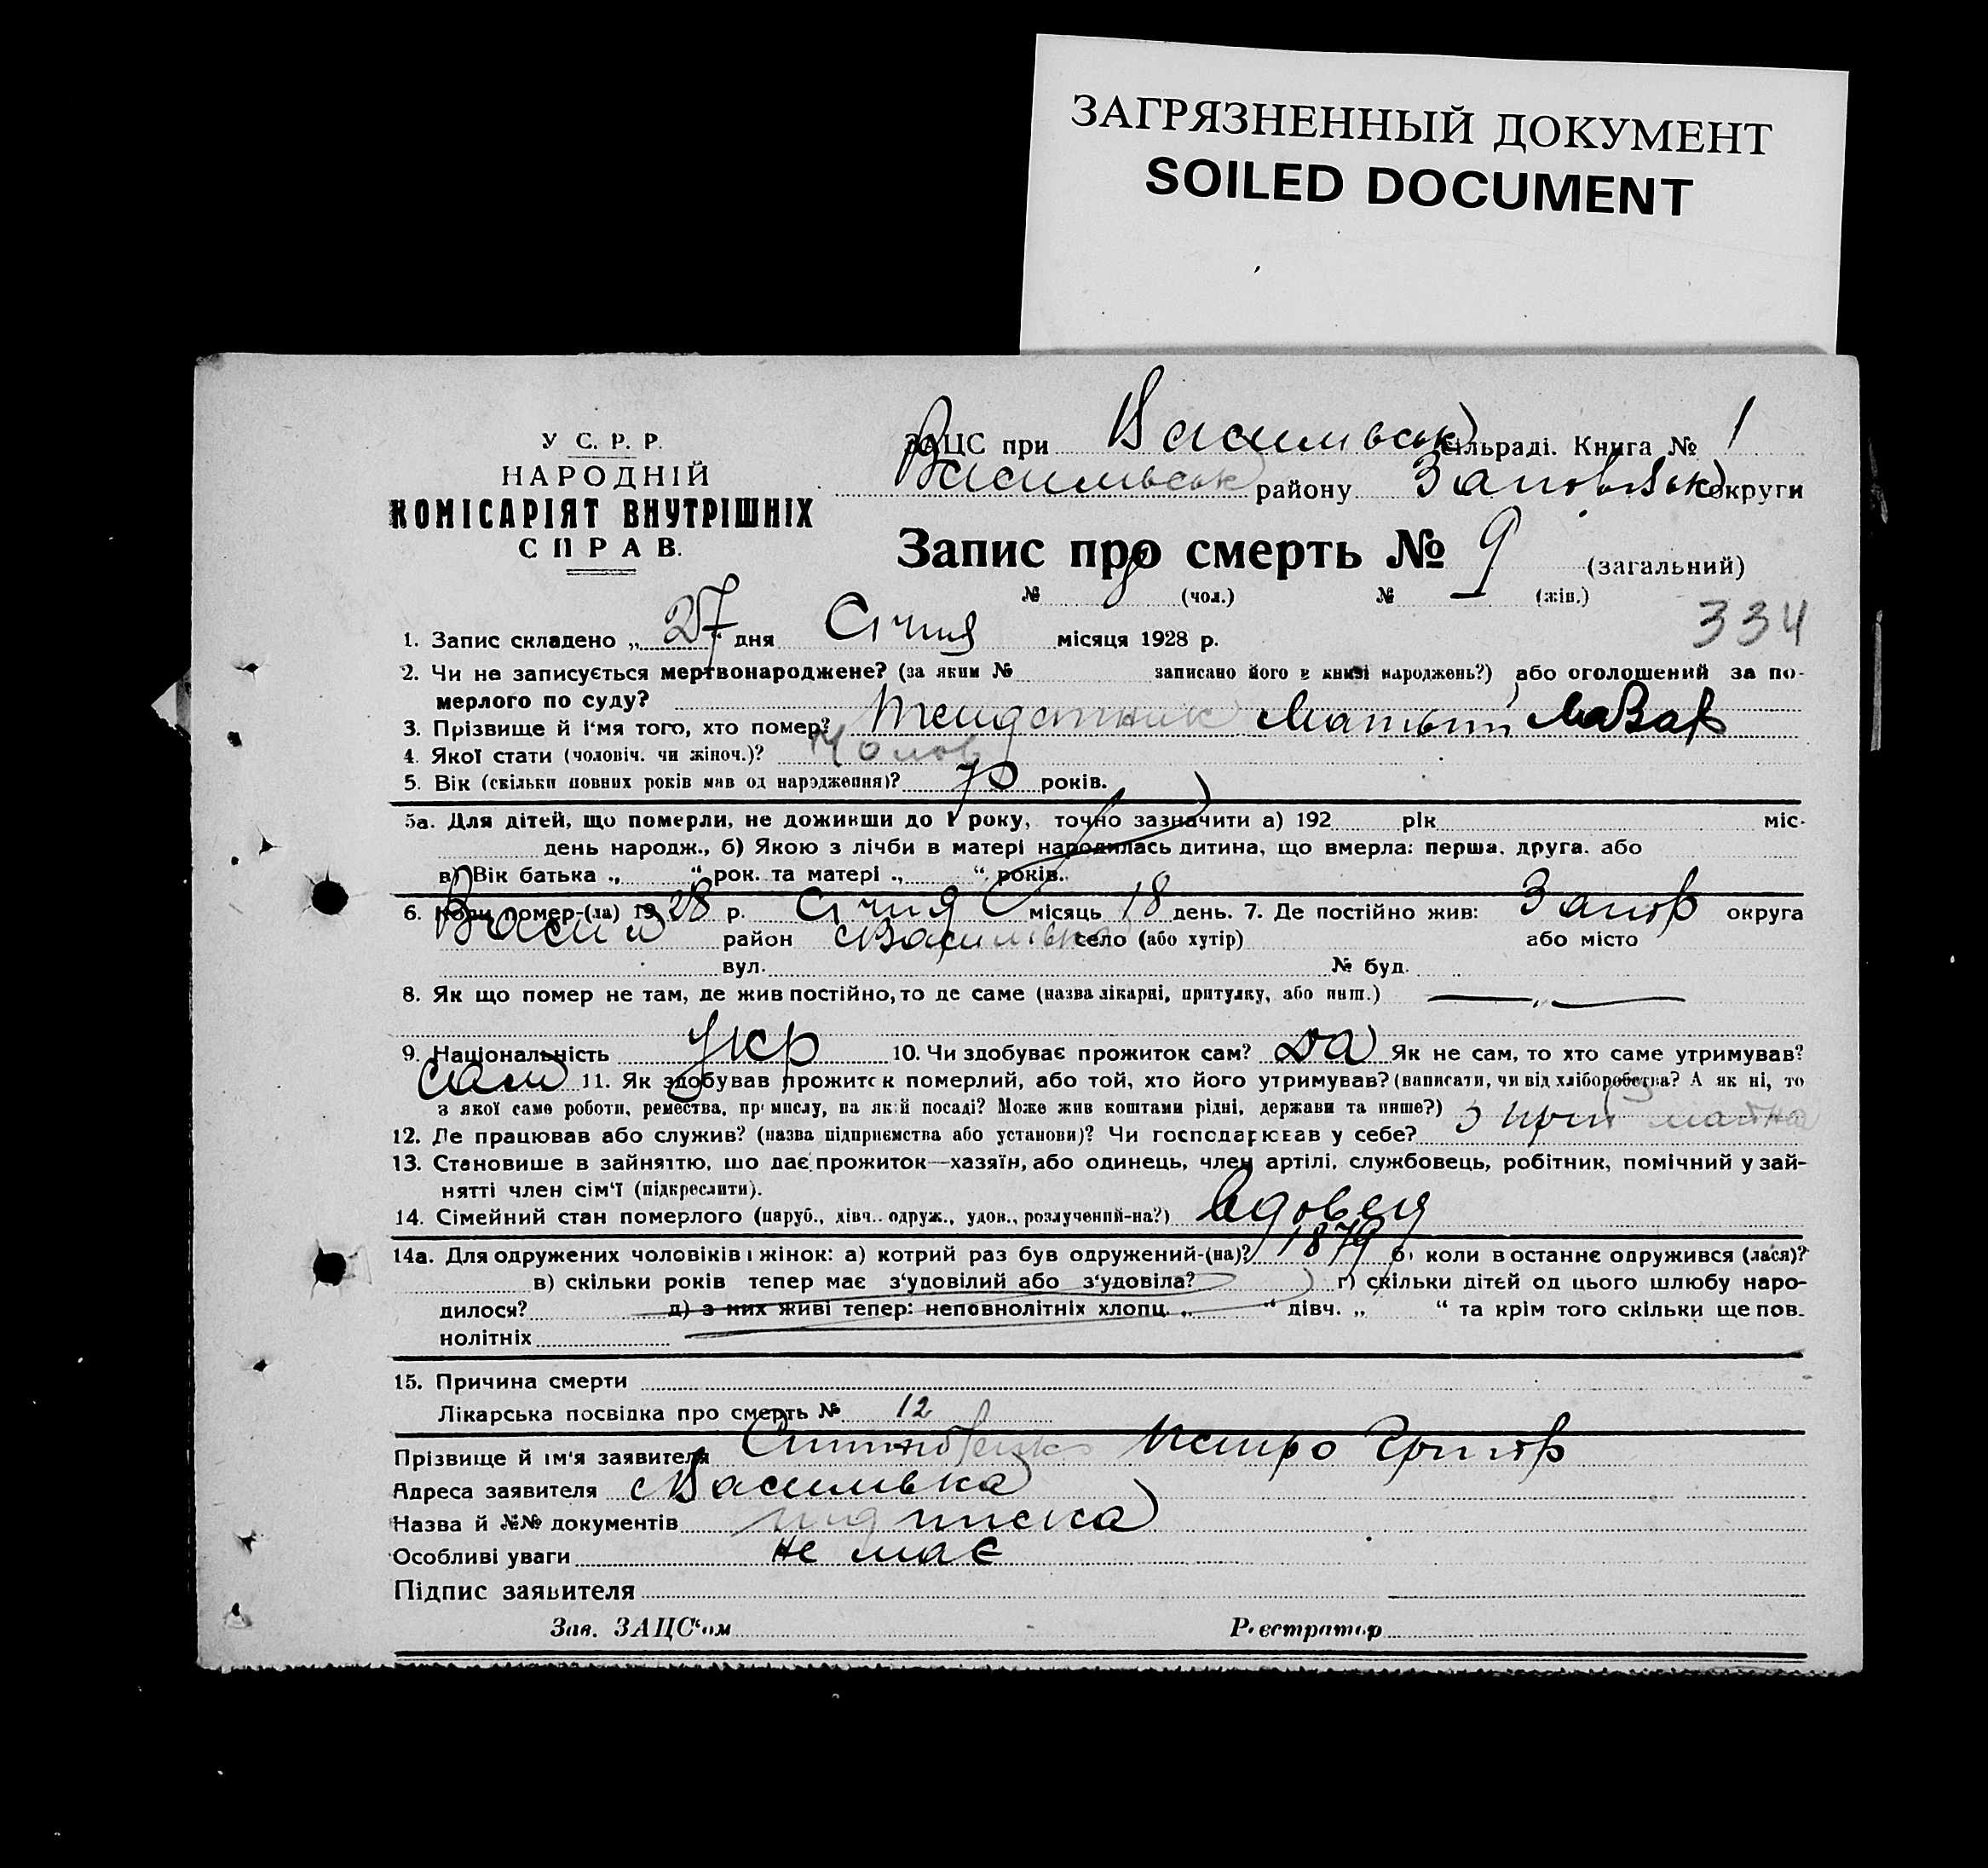 ЗАГРЯЗНЕННЫЙ ДОКУМЕНТ
SOILED DOCUMENT
У С. Р. Р.
НАРОДНІЙ
КОМІСАРІЯТ ВНУТРІШНІХ
СПРАВ.
ЗАЦС при Васильвськ сільраді. Книга № 1
Васильвськ району округи
Запис про смерть № 9 (загальний)
№ 8 (чол.) № — (жін.)
334
1. Запис складено „ 27 " дня Січня місяця 1928 р.
2. Чи не записується мертвонароджене? (за яким № записано його в книзі народжень?) або оголошений за по-
мерлого по суду?
3. Прізвище й і'мя того, хто помер? Матвій
4. Якої стати (чоловіч. чи жіноч.)? Чолов
5. Вік (скільки повних років мав од народження)? 70 років.
5а. Для дітей, що померли, не доживши до 1 року, точно зазначити а) 192 рік міс.
день народж., б) Якою з лічби в матері народилась дитина, що вмерла: перша, друга, або
в) Вік батька „ " рок. та матері „ " років.
6. Коли помер-(ла) 1928 р. Січня місяць 18 день. 7. Де постійно жив: Запор округа
Васил район с Василівка село (або хутір) або місто
вул. № буд.
8. Як що помер не там, де жив постійно, то де саме (назва лікарні, притулку, або инш.) — „ —
9. Національність Укр 10. Чи здобуває прожиток сам? Да Як не сам, то хто саме утримував?
Сам 11. Як здобував прожиток померлий, або той, хто його утримував? (написати, чи від хліборобства? А як ні, то
з якої саме роботи, ремества, промислу, на якій посаді? Може жив коштами рідні, держави та инше?)
12. Де працював або служив? (назва підприємства або установи)? Чи господарював у себе?
13. Становище в зайняттю, що дає прожиток—хазяїн, або одинець, член артілі, службовець, робітник, помічний у зай-
нятті член сім'ї (підкреслити).
14. Сімейний стан померлого (паруб., дівч., одруж., удов., розлучений-на?) Вдовец
14а. Для одружених чоловіків і жінок: а) котрий раз був одружений-(на)? 1879 б) коли в останнє одружився (лася)?
в) скільки років тепер має з'удовілий або з'удовіла? г) скільки дітей од цього шлюбу наро-
дилося? д) з них живі тепер: неповнолітніх хлопц. „ " дівч. „ " та крім того скільки ще пов-
нолітніх
15. Причина смерти
Лікарська посвідка про смерть № 12
Прізвище й ім'я заявителя Петро Григор
Адреса заявителя с Василівка
Назва й №№ документів підписка
Особливі уваги не має
Підпис заявителя
Зав. ЗАЦС'ом Реєстратор